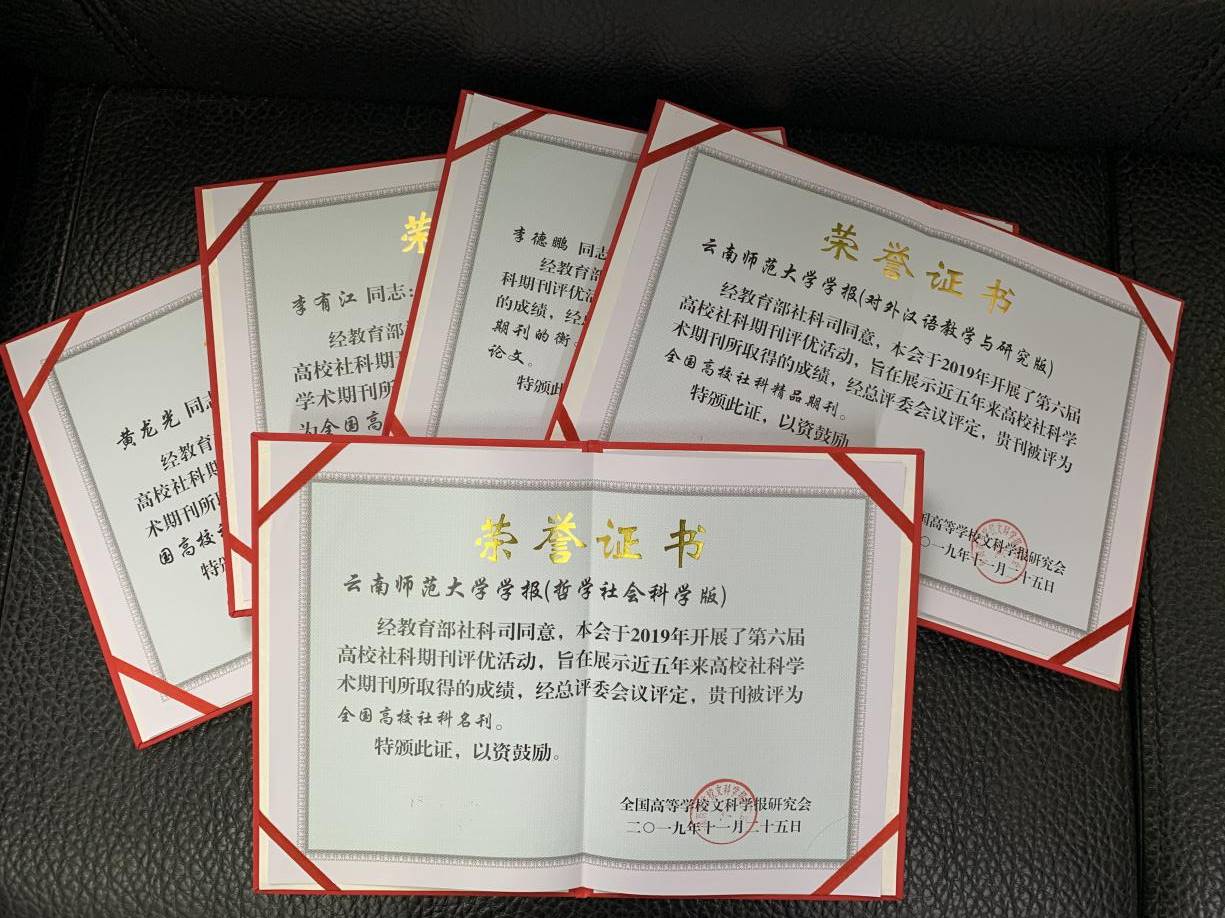 荣誉证书
云南师范大学学报(哲学社会科学版)
经教育部社科司同意，本会于2019年开展了第六届
高校社科期刊评优活动，旨在展示近五年来高校社科学
术期刊所取得的成绩，经总评委会议评定，贵刊被评为
全国高校社科名刊。
特颁此证，以资鼓励。
全国高等学校文科学报研究会
二〇一九年十一月二十五日
荣誉证书
云南师范大学学报(对外汉语教学与研究版)
经教育部社科司同意，本会于2019年开展了第六届
高校社科期刊评优活动，旨在展示近五年来高校社科学
术期刊所取得的成绩，经总评委会议评定，贵刊被评为
全国高校社科精品期刊。
特颁此证，以资鼓励
国高等学校文科学报研究会
〇一九年十一月二十五日
李德鹏 同志
经教育部
科期刊评优活
的成绩，经总
期刊的衡
论文。
特颁此
荣
李有江 同志：
经教育部
高校社科期刊
学术期刊所
为全国高
黄龙光 同志
经教育
高校社科期
术期刊所
国高校
特颁